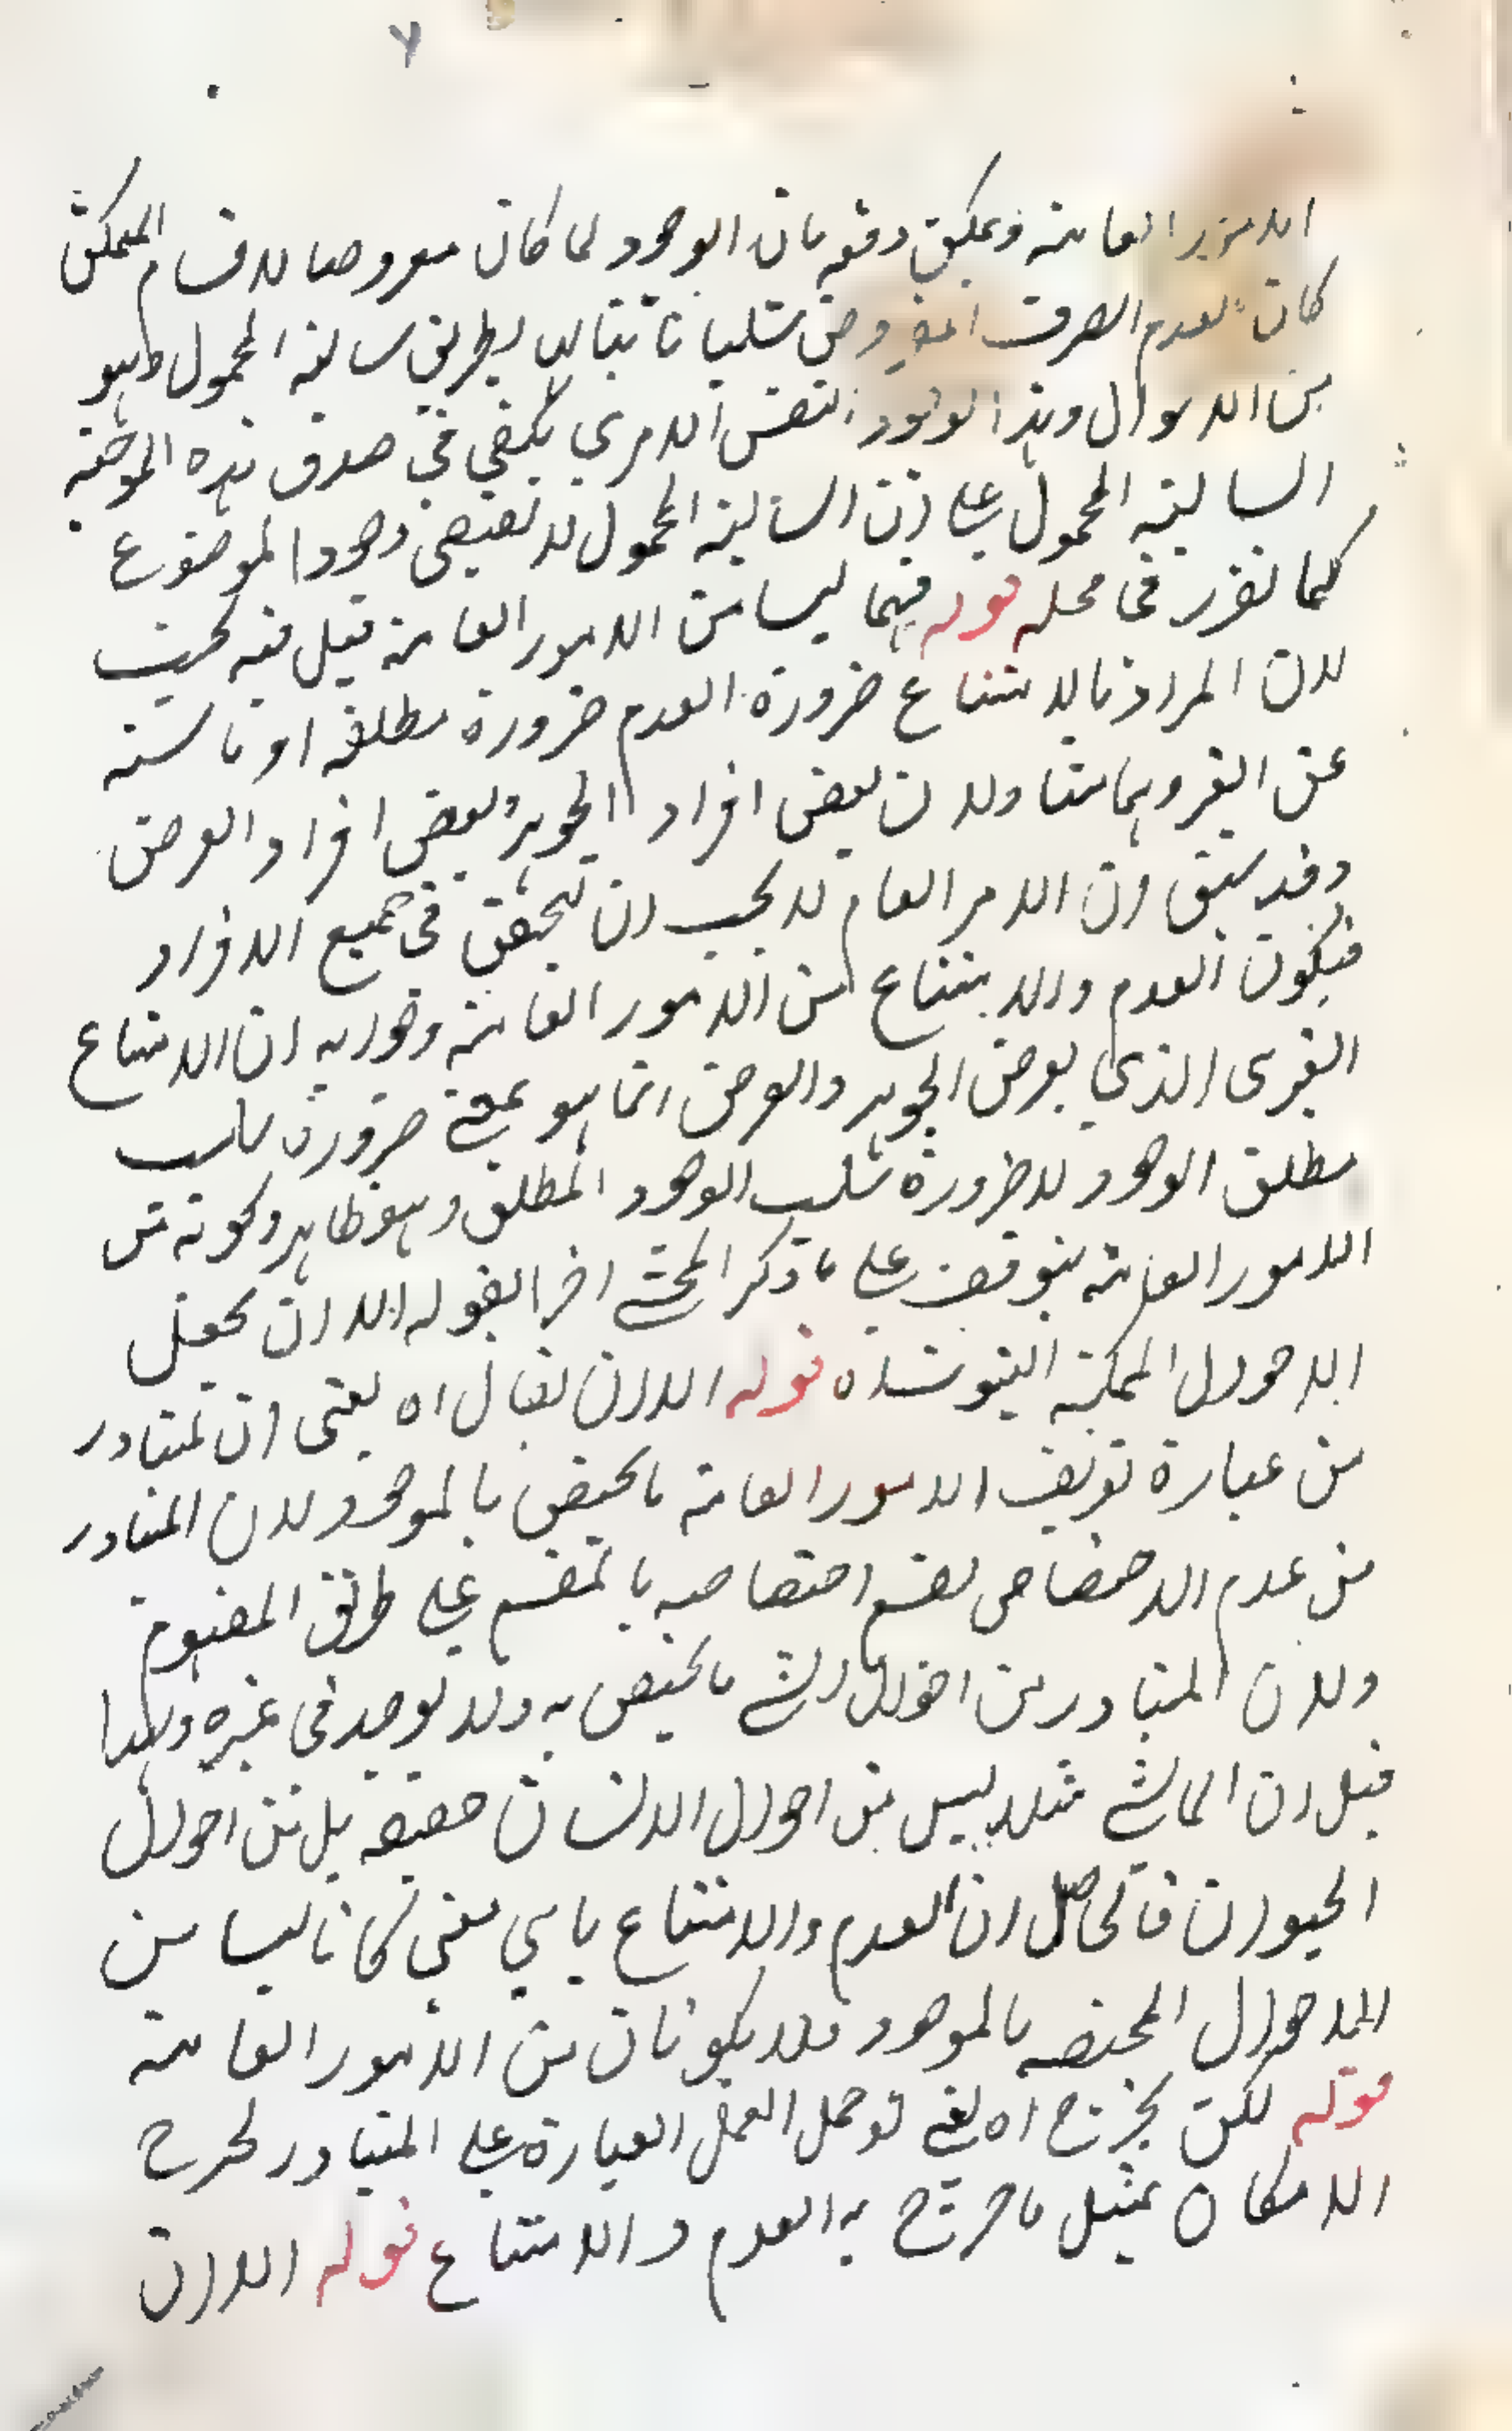 ٧
الامور العامة ويمكن دفعه بان الوجود لما كان معروضا لاقسام الممكن
كان العدم الصرف وصفا سلبيا ثابتا لها بطريق سالبة المحمول وهو
من الاحوال وهذا الوجود النفس الامري يكفي في صدق هذه الموجبة
السالبة المحمول على ان السالبة المحمول لا تقتضي وجود الموضوع
كما تقرر في محله قوله فهما ليسا من الامور العامة قيل فيه بحث
لان المراد بالامتناع ضرورة العدم ضرورة مطلقة او ناشئة
عن الغير وهما متناولان بعض افراد الجوهر وبعض افراد العرض
وقد سبق ان الامر العام لا يجب ان يتحقق في جميع الافراد
فيكون العدم والامتناع من الامور العامة وجوابه ان الامتناع
الغيرى الذي يعرض الجوهر والعرض انما هو بمعنى ضرورة سلب
مطلق الوجود لا ضرورة سلب الوجود المطلق وهو ظاهر وكونه من
الامور العامة يتوقف على ما ذكر المحشي اخرا بقوله الا ان يجعل
الاحوال الممكنة الثبوت اه قوله الا ان يقال اه يعني ان المتبادر
من عبارة تعريف الامور العامة ما يختص بالموجود لان المتبادر
من عدم الاختصاص بقسم اختصاصه بالمقسم على طريق المفهوم
ولان المتبادر من احوال الشيء ما يختص به ولا يوجد في غيره ولهذا
قيل ان الماشي مثلا ليس من احوال الانسان حقيقة بل من احوال
الحيوان فالحاصل ان العدم والامتناع باي معنى كانا ليسا من
الاحوال المختصه بالموجود فلا يكونان من الامور العامة
قوله لكن يخرج اه يعني لو حمل العبارة على المتبادر لخرج
الامكان بمثل ما خرج به العدم والامتناع قوله الا ان